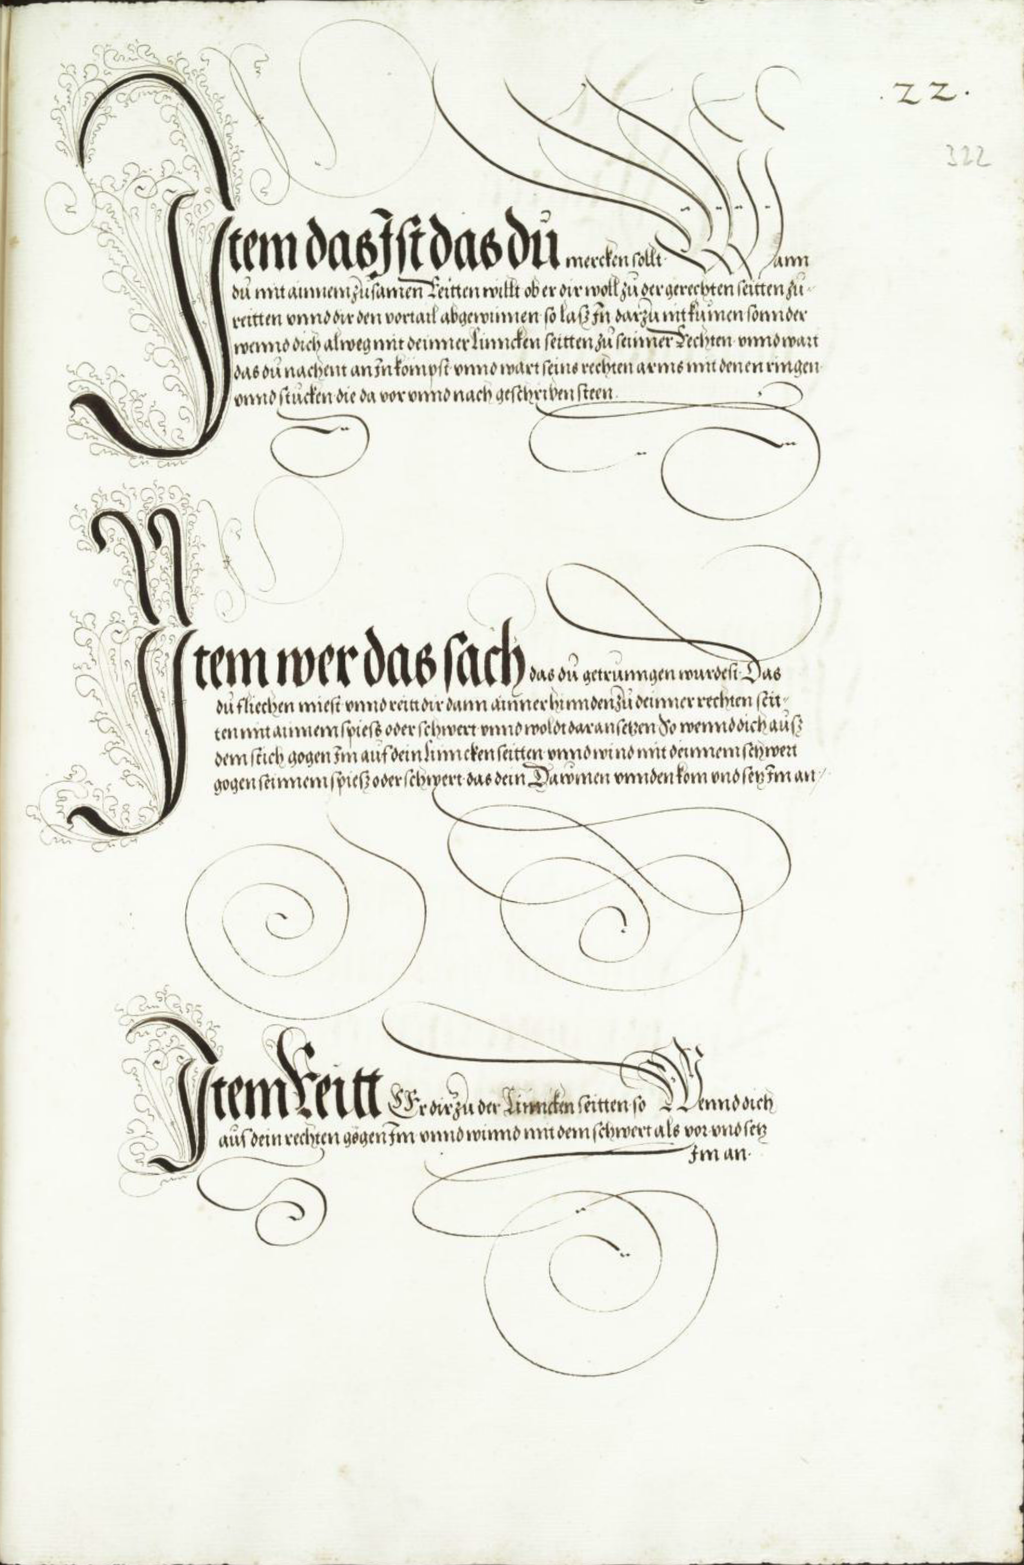 .22.
322
Item das Ist das dů mercken sollt Wann
dů mit ainnem zůsamen Reitten willt ob er dir woll zů der gerechten seitten zů
reitten vnnd dir den vortail abgewinnen so lasz In darzů nit kůmen sonnder
wennd dich alweg mit deinner linncken seitten zů seinner Rechten vnnd wart
das dů nachent an In kompst vnnd wart seins rechten arms mit denen ringen
vnnd stůcken die da vor vnnd nach geschriben steen.
Item wer das sach das dů getrunngen wurdest Das
dů fliechen miest vnnd reitt dir dann ainner hinnden zů deinner rechten seit-
ten mit ainnem spiesz oder schwert vnnd woldt dar ansetzen So wennd dich ausz
dem stich gogen Im auf dein linncken seitten vnnd wind mit deinnem schwert
gogen seinnem spiesz oder schwert das dein Dawmen vnnden kom vnd setz Im an
Item Reitt Er dir zů der linncken seitten so Wennd dich
auf dein rechten gogen Im vnnd winnd mit dem schwert als vor vnd setz
Im an.